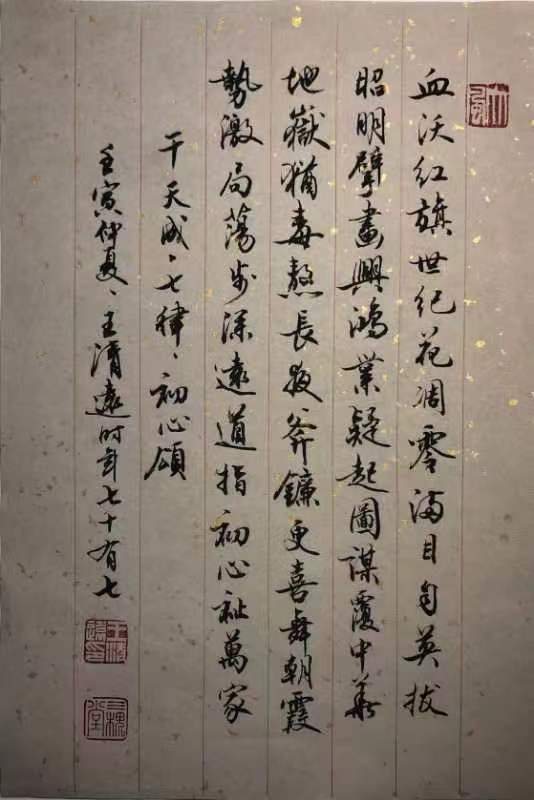 血沃红旗世纪花凋零满目自英拔
昭明擘畫興鴻業疑起圖謀覆中華
地獄猶毒熬長夜斧鐮更喜舞朝霞
勢激局蕩步深遠道指初心祉萬家
干天成、七律、初心頌
壬寅仲夏、王清遠时年七十有七
三槐堂